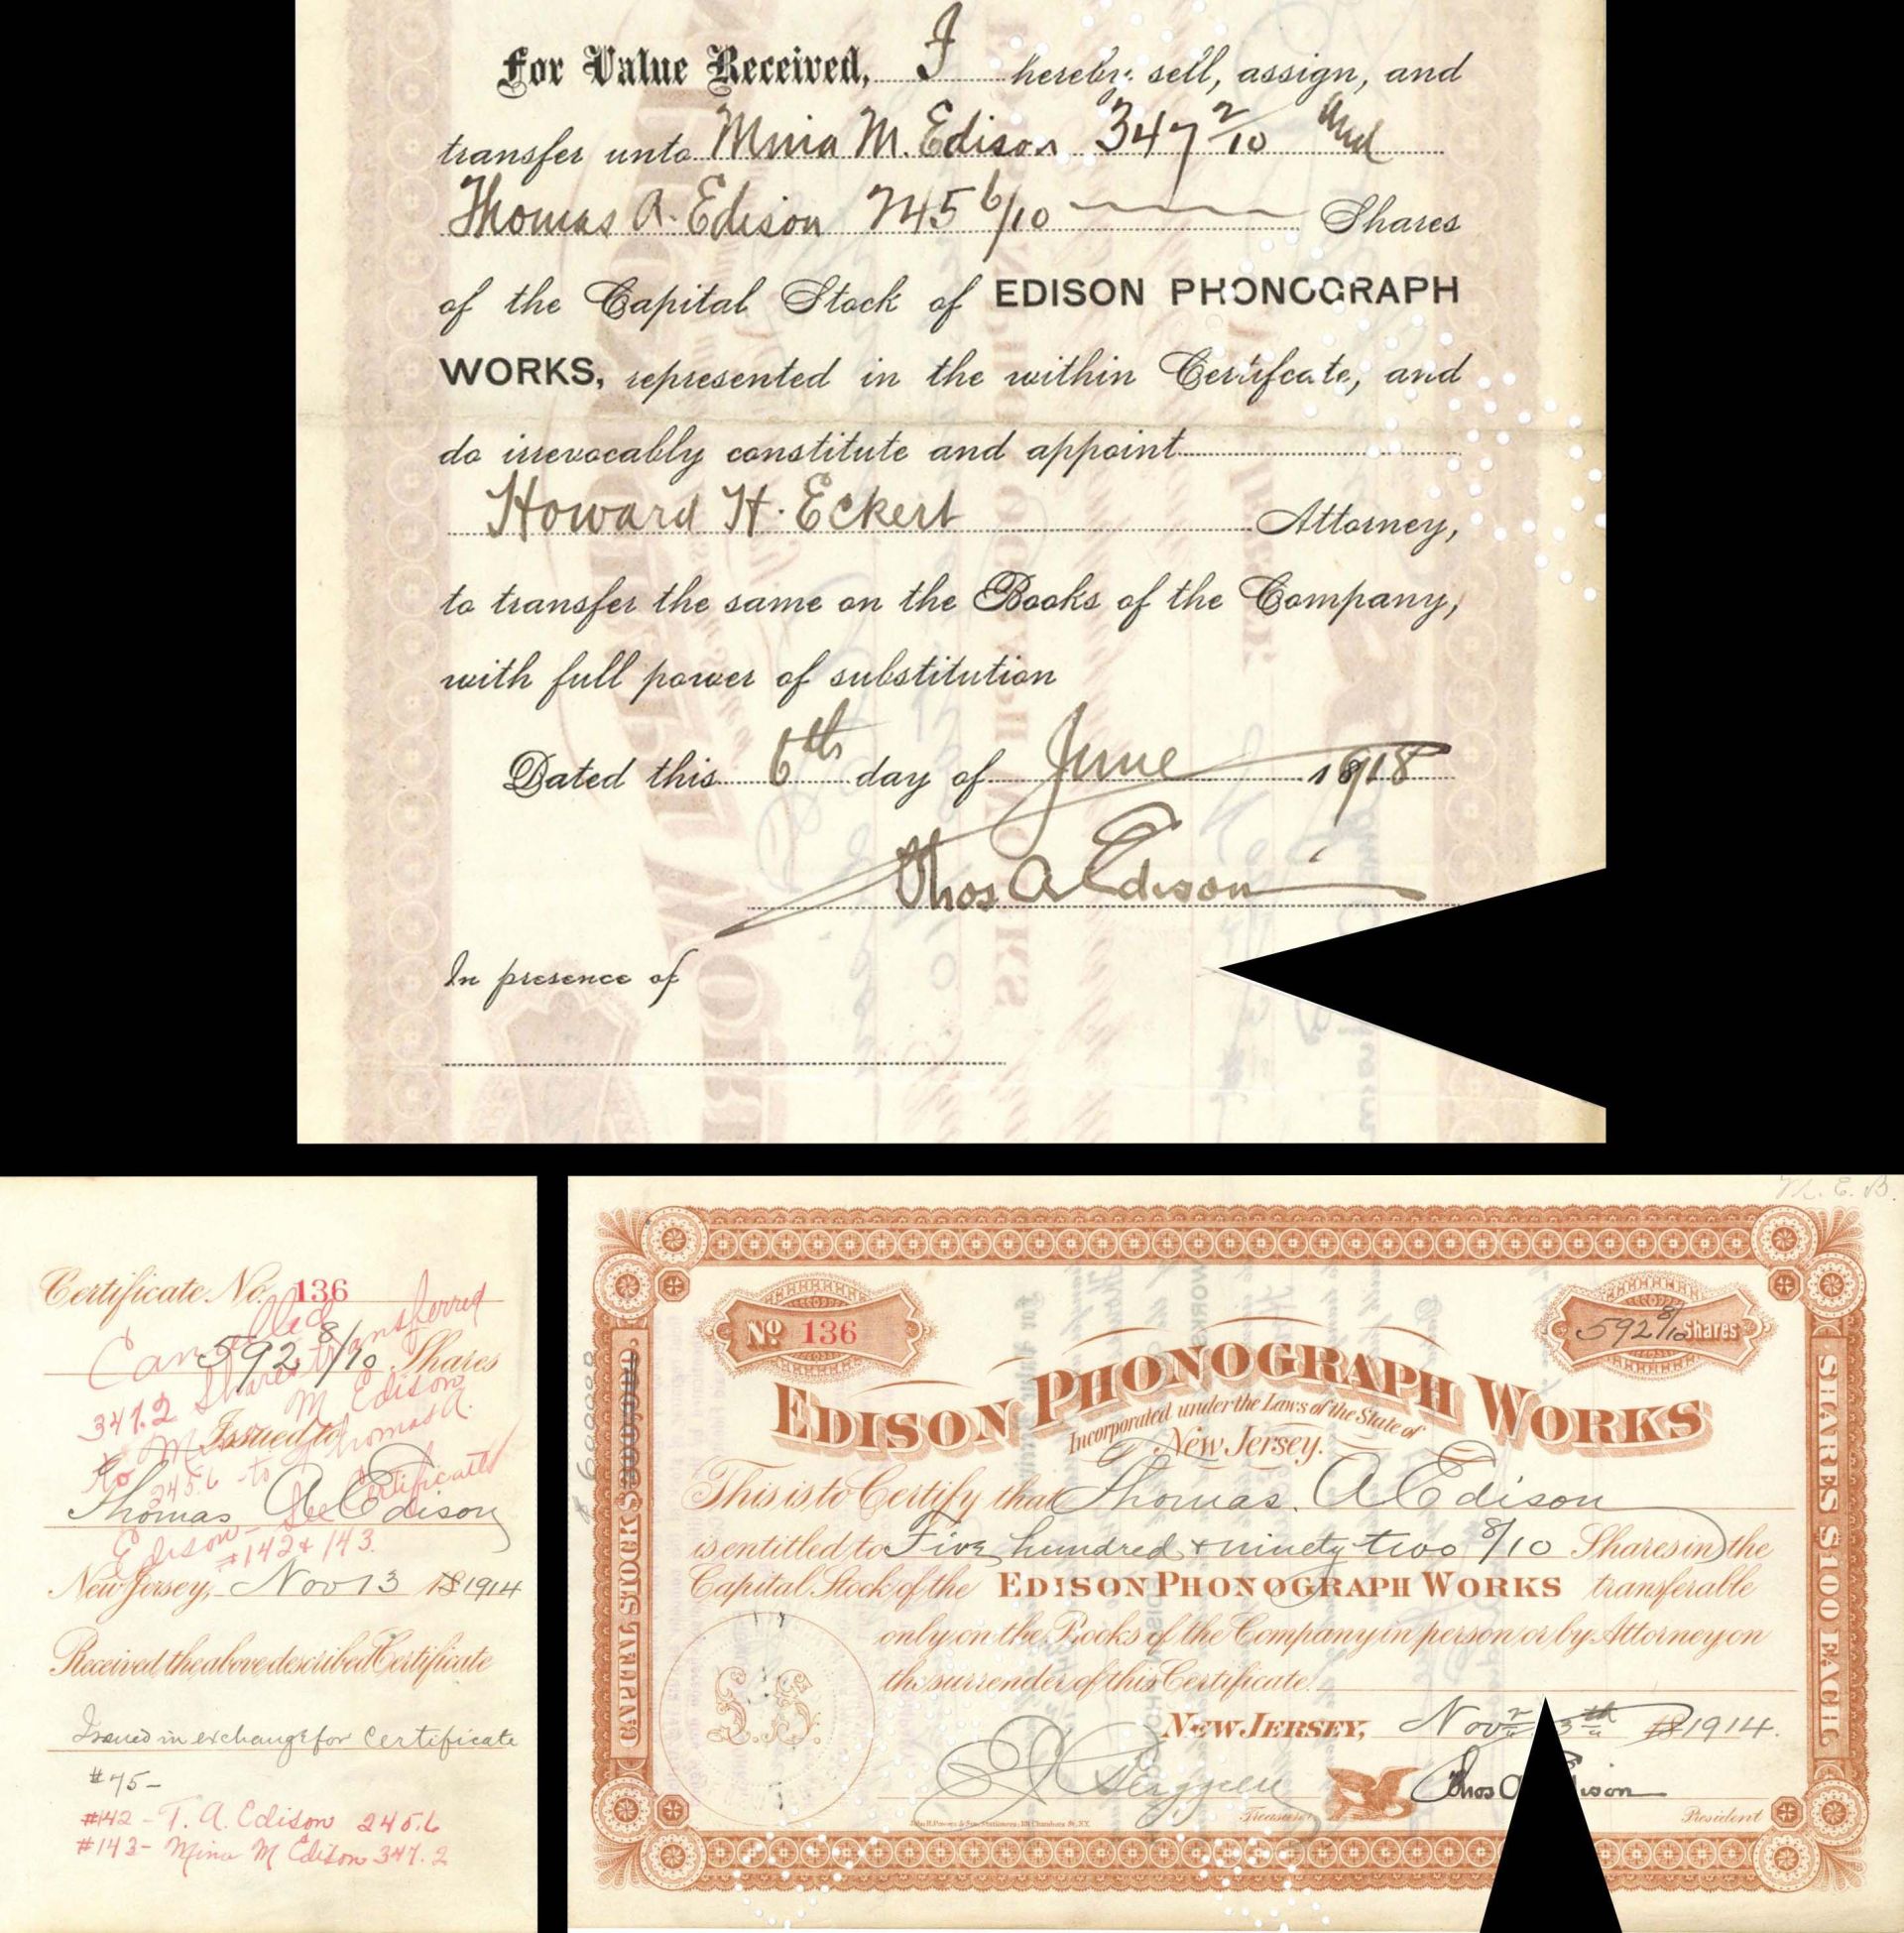 For Value Received, I hereby sell, assign, and
transfer unto Mina M. Edison 347 2/10 and
Thomas A. Edison 245 6/10 Shares
of the Capital Stock of EDISON PHONOGRAPH
WORKS, represented in the within Certificate, and
do irrevocably constitute and appoint
Howard H. Eckert Attorney,
to transfer the same on the Books of the Company,
with full power of substitution
Dated this 6th day of June 1918
Thos A Edison
In presence of
Certificate No. 136
Cancelled
592 8/10 Shares
347.2 Shares transferred
to M M Edison
Issued to
245.6 - to Thomas A.
Thomas A Edison
Edison - See Certificates
#142 & 143.
New Jersey, Nov 13 18 1914
Received the above described Certificate
Issued in exchange for Certificate
#75-
#142 - T. A. Edison 245.6
#143 - Mina M Edison 347.2
M. E. B.
No 136
592 8/10 Shares
EDISON PHONOGRAPH WORKS
Incorporated under the Laws of the State of
New Jersey.
This is to Certify that Thomas. A Edison
is entitled to Five hundred + ninety two 8/10 Shares in the
Capital Stock of the EDISON PHONOGRAPH WORKS transferable
only on the Books of the Company in person or by Attorney on
the surrender of this Certificate.
NEW JERSEY, Nov 1914.
Thos A ison
Treasurer
President
CAPITAL STOCK
SHARES $100 EACH